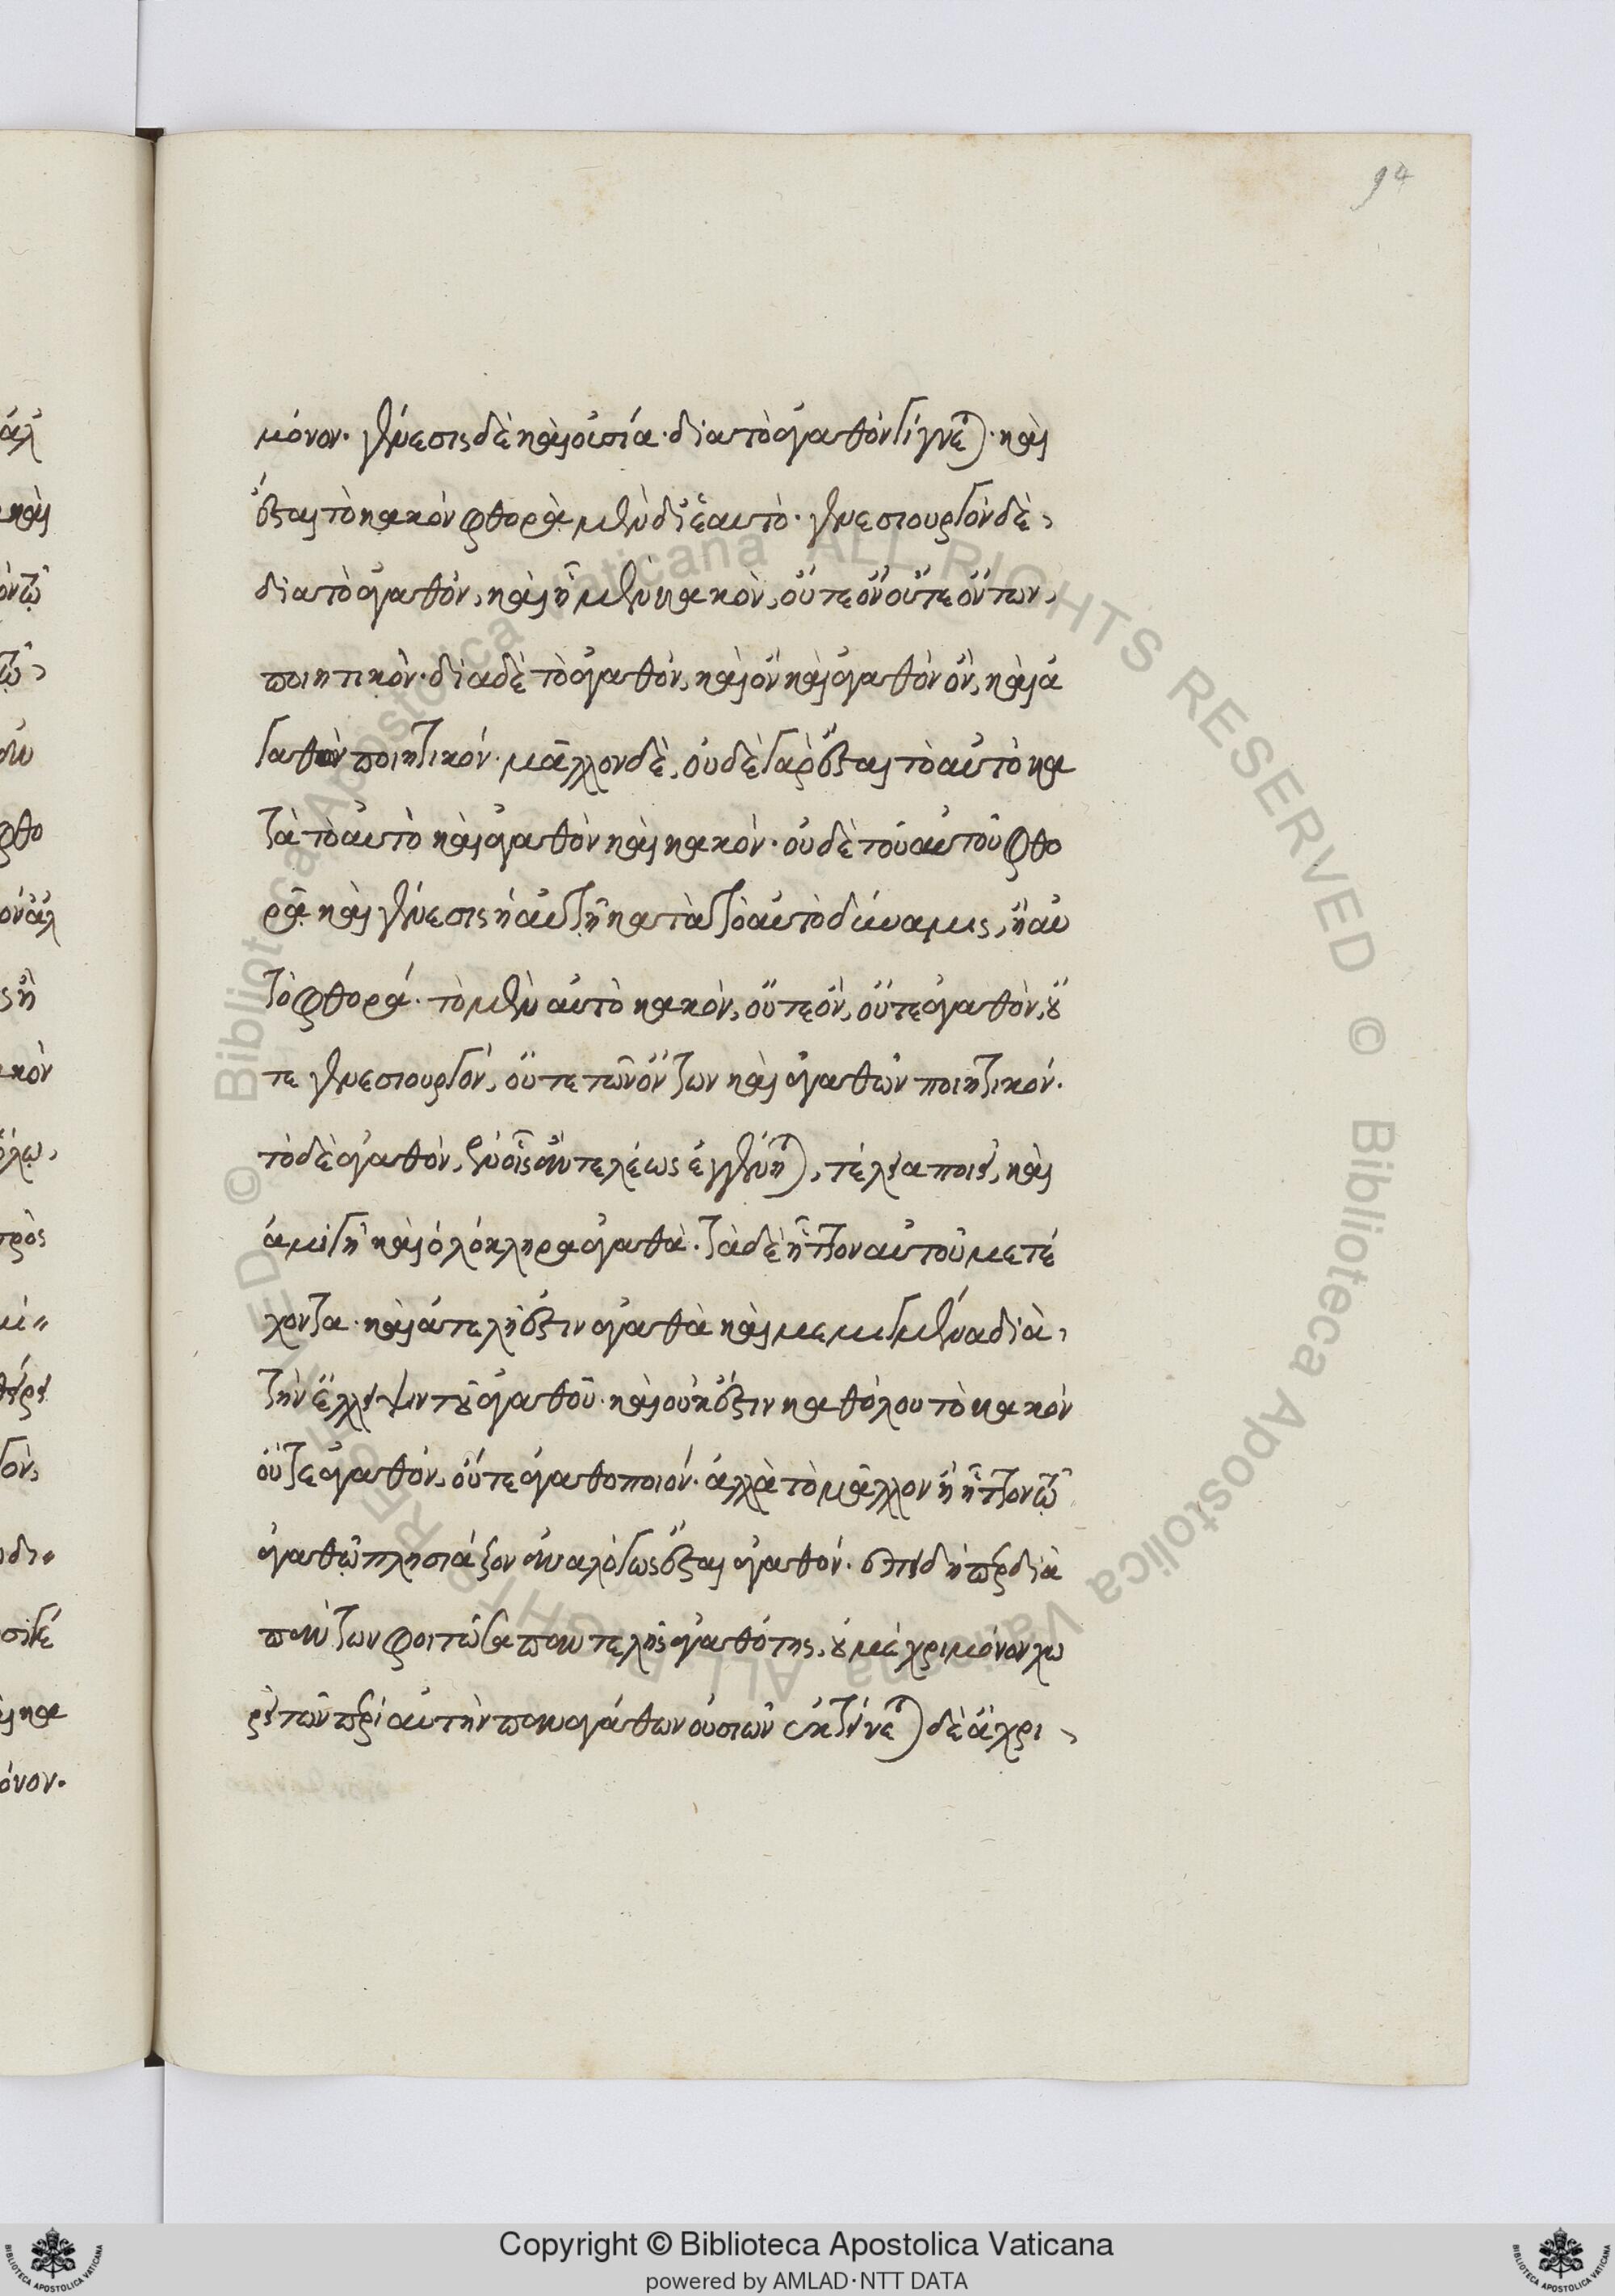 94
μόνον· γένεσις δὲ καὶ οὐσία· διὰ τὸ ἀγαθὸν γίγνεται· καὶ
ἔσται τὸ κακὸν φθορὰ μὲν δι' ἑαυτό· γενεσιουργὸν δὲ,
διὰ τὸ ἀγαθόν, καὶ ᾗ μὲν κακὸν, οὔτε ὂν οὔτε ὄντων,
ποιητικόν· διὰ δὲ τὸ ἀγαθόν, καὶ ὂν καὶ ἀγαθὸν ὂν, καὶ ἀ
γαθῶν ποιητικόν· μᾶλλον δὲ, οὐδὲ γὰρ ἔσται τὸ αὐτὸ κα
τὰ τὸ αὐτὸ καὶ ἀγαθὸν καὶ κακόν· οὐδὲ τοῦ αὐτοῦ φθο
ρὰ καὶ γένεσις ἡ αὐτὴ κατὰ τὸ αὐτὸ δύναμις, ἢ αὐ
τὸ φθορά· τὸ μὲν αὐτὸ κακὸν, οὔτε ὂν, οὔτε ἀγαθὸν, οὔ
τε γενεσιουργὸν, οὔτε τῶν ὄντων καὶ ἀγαθῶν ποιητικόν·
τὸ δὲ ἀγαθὸν, ἐν οἷς ἂν τελέως ἐγγένηται, τέλεια ποιεῖ, καὶ
ἀμιγῆ καὶ ὁλόκληρα ἀγαθά· τὰ δὲ ἧττον αὐτοῦ μετέ
χοντα· καὶ ἀτελῆ ἔστιν ἀγαθὰ καὶ μεμιγμένα διὰ,
τὴν ἔλλειψιν τοῦ ἀγαθοῦ· καὶ οὐκ ἔστιν καθόλου τὸ κακόν
οὔτε ἀγαθόν, οὔτε ἀγαθοποιόν· ἀλλὰ τὸ μᾶλλον ἢ ἧττον τῷ
ἀγαθῷ πλησιάζον ἀναλόγως ἔσται ἀγαθόν· ἐπειδήπερ διὰ
πάντων φοιτῶσα παντελὴς ἀγαθότης, οὐ μέχρι μόνον χω
ρεῖ τῶν περὶ αὐτὴν παναγάθων οὐσιῶν ἐκτείνεται δὲ ἄχρι
Copyright © Biblioteca Apostolica Vaticana
powered by AMLAD·NTT DATA